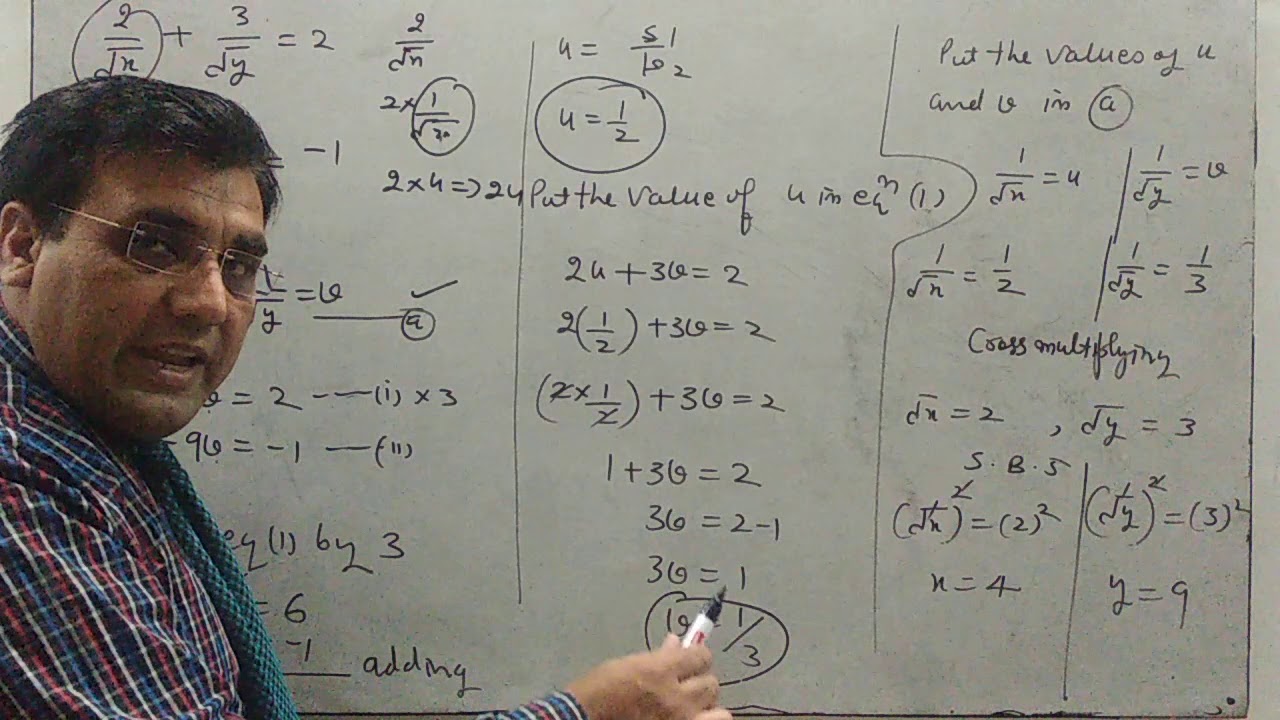 2/√x + 3/√y = 2
= -1
1/y = v —— (a) ✓
v = 2 --—(i) × 3
-9v = -1 —(ii)
eq(1) by 3
= 6
-1 adding
2/√x
2 × 1/√x
2×u => 2u
u = 5/10 1/2
u = 1/2
Put the value of u in eqn (1)
2u + 3v = 2
2(1/2) + 3v = 2
(2×1/2) + 3v = 2
1 + 3v = 2
3v = 2-1
3v = 1
v 1/3
Put the values of u
and v in (a)
1/√x = u | 1/√y = v
1/√x = 1/2 | 1/√y = 1/3
Cross multiplying
√x = 2 , √y = 3
S.B.S
(√x)² = (2)² | (√y)² = (3)²
x = 4
y = 9